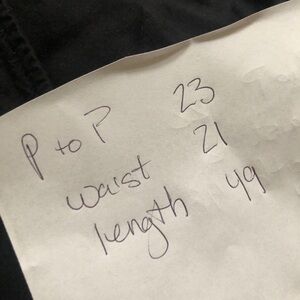 P to P 23
waist 21
length 49